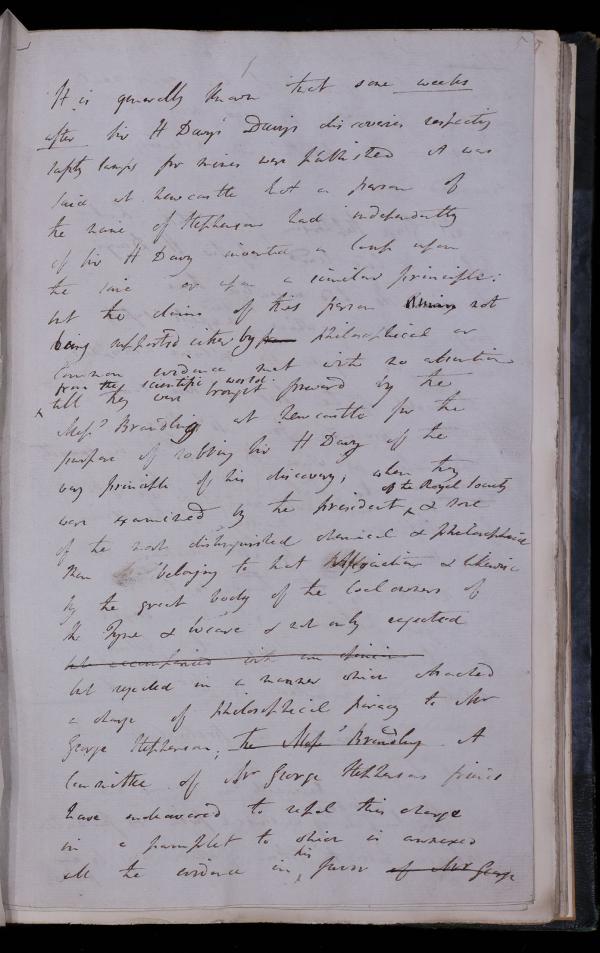 It is generally known that some weeks
after Sir H Davys Davys discoveries respecting
safety lamps for mines were published it was
said at Newcastle that a person of
the name of Stephenson had independently
of Sir H Davy invented a lamp upon
the same or upon a similar principle:
but the claims of this person not
being supported either by philosophical or
common evidence met with no attention
from the scientific world
till they were brought forward by the
Messrs Brandling at Newcastle for the
purpose of robbing Sir H Davy of the
very principle of his discovery; when they
of the Royal Society
were examined by the president & some
of the most distinguished chemical & philosophical
men belonging to that Association & likewise
by the great body of the Coal owners of
the Tyne & Weare & not only rejected
but accompanied with an opinion
but rejected in a manner which attached
a charge of philosophical piracy to Mr
George Stephenson; The Messrs Brandling A
Committee of Mr George Stephensons friends
have endeavoured to repel this charge
in a pamphlet to which is annexed
all the evidence in his favor of Mr George